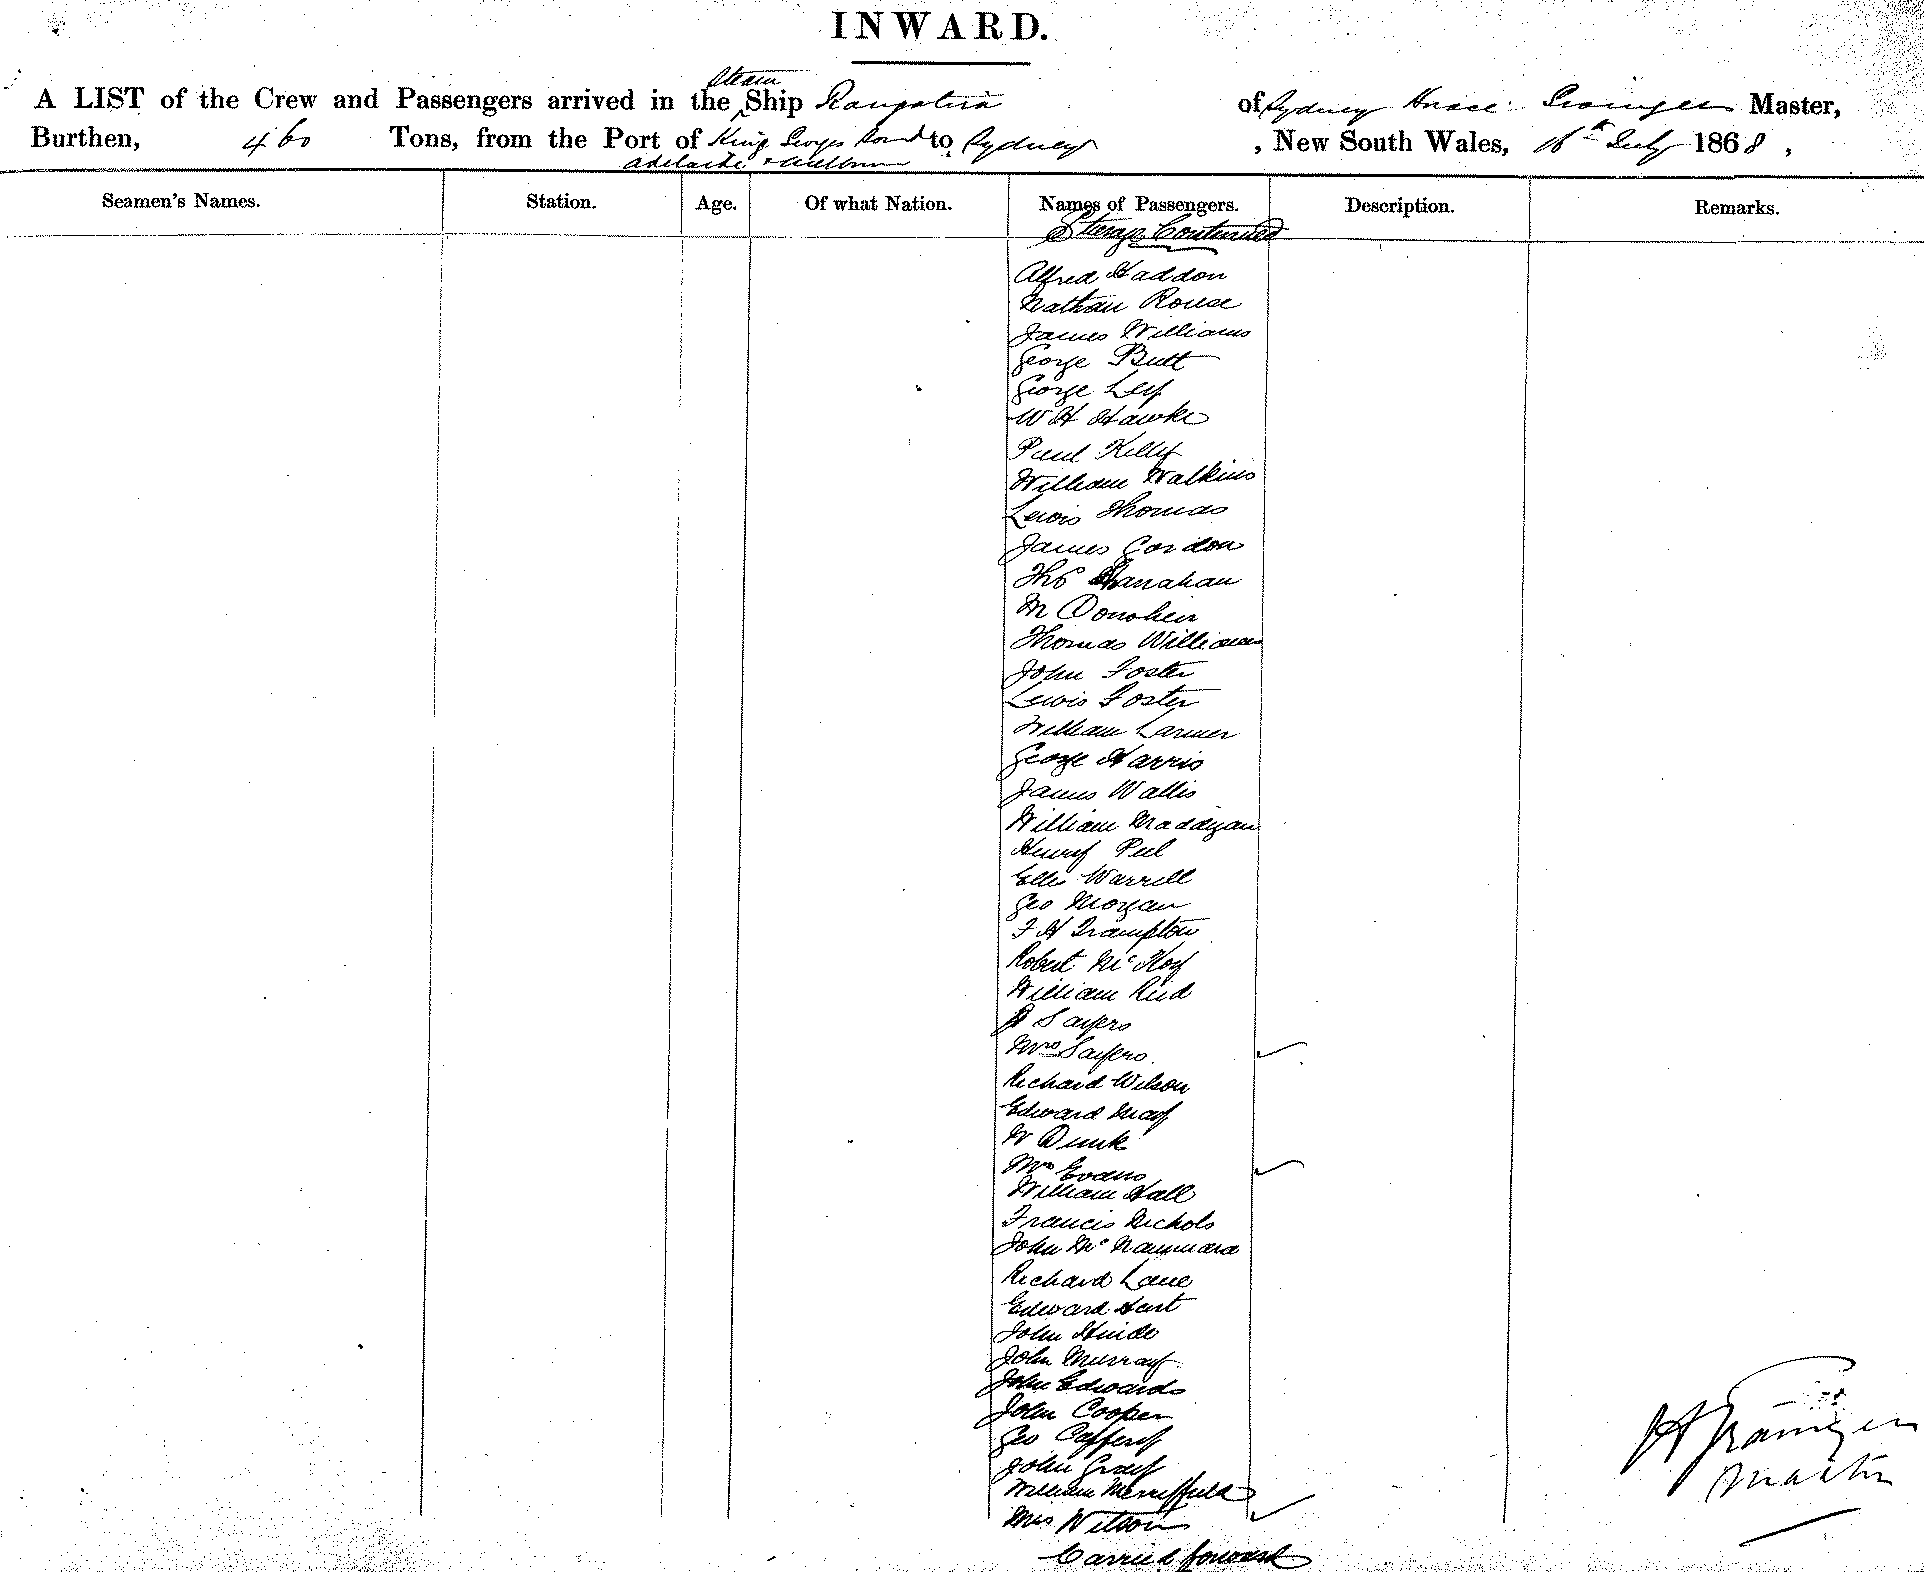 INWARD.
Steam
A LIST of the Crew and Passengers arrived in the Ship Rangatira of Sydney Grainger Master,
Burthen, 460 Tons, from the Port of King Georges Sound to Sydney, New South Wales, 16th July 1868,
Adelaide & Melbourne
Seamen's Names. Station. Age. Of what Nation. Names of Passengers. Description. Remarks.
Steerage Continued
Alfred Haddon
Nathan Rouse
James Williams
George Butt
George Ley
W H Hawke
Paul Kelly
William Walkins
Lewis Thomas
James Gordon
Thos Shanahan
M Donohue
Thomas Williams
John Foster
Lewis Foster
William Larmer
George Harris
James Wallis
William Maddigan
Henry Peel
Ellis Warrell
Geo Morgan
F H Frampton
Robert McKoy
William Reid
Sayers
Mrs Sayers
Richard Wilson
Edward May
W Dunk
Mrs Evans
William Hall
Francis Nichols
John McNammara
Richard Lane
Edward Hart
John Hinde
John Murray
John Edwards
John Cooper
Geo Caffery
John Gray
William Merryfield
Mrs Wilson
Carried forward
H Grainger
Master